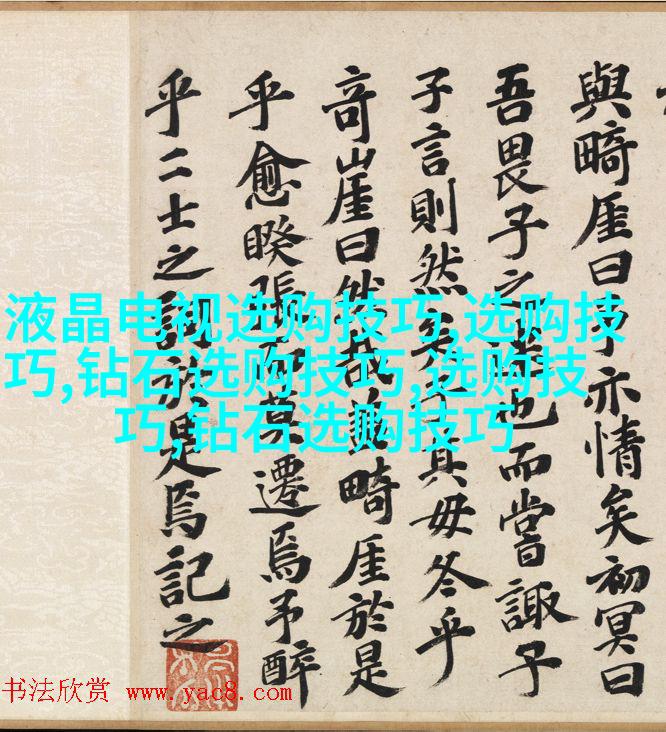 與畸厓曰予亦情矣初冥曰
吾畏子之也而嘗諏子
子言則然矣子真毋冬乎
竒崖曰然哉畸厓於是
乎愈睽張而莫遷焉予醉
乎二士之詞於是焉記之
液晶电视选购技巧,选购技
巧,钻石选购技巧,选购技
巧,钻石选购技巧
书法欣赏 www.yac8.com